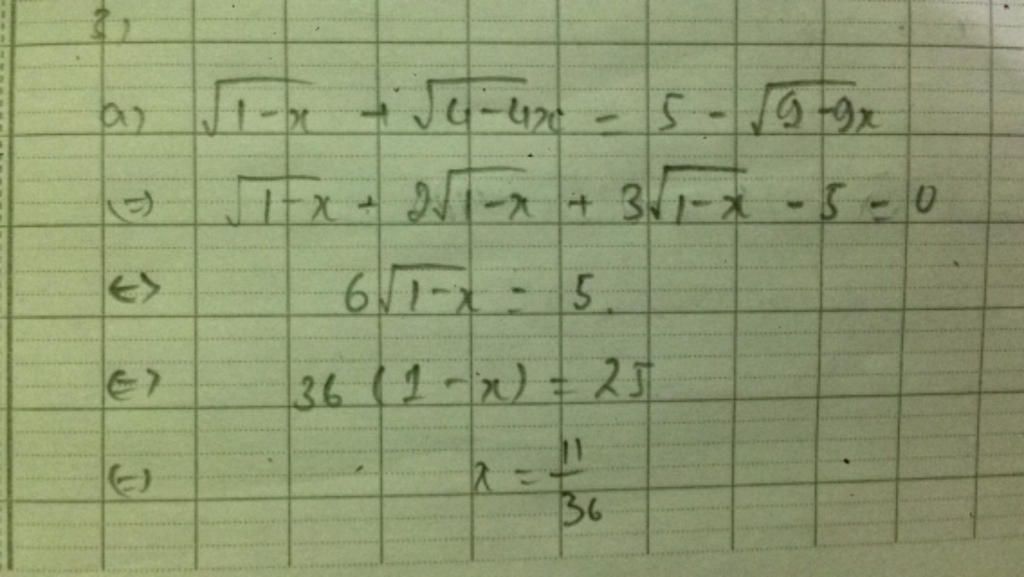 3,
a) √(1-x) + √(4-4x) = 5 - √(9-9x)
(=) √(1-x) + 2√(1-x) + 3√(1-x) - 5 = 0
<=> 6√(1-x) = 5.
<=> 36 (1-x) = 25
(=) x = 11/36